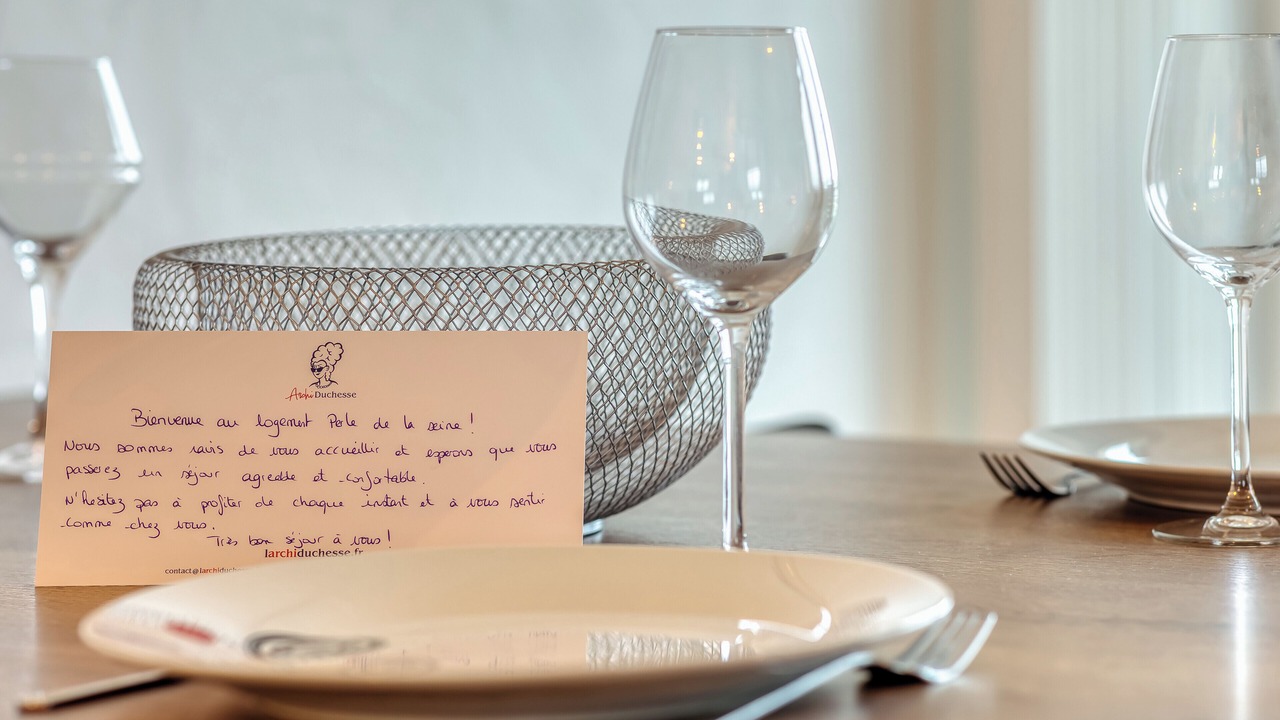 Archi Duchesse
Bienvenue au logement Perle de la seine !
Nous sommes ravis de vous accueillir et espérons que vous
passerez un séjour agréable et confortable.
N'hésitez pas à profiter de chaque instant et à vous sentir
comme chez vous.
Très bon séjour à vous !
larchiduchesse.fr
contact@larchiduch